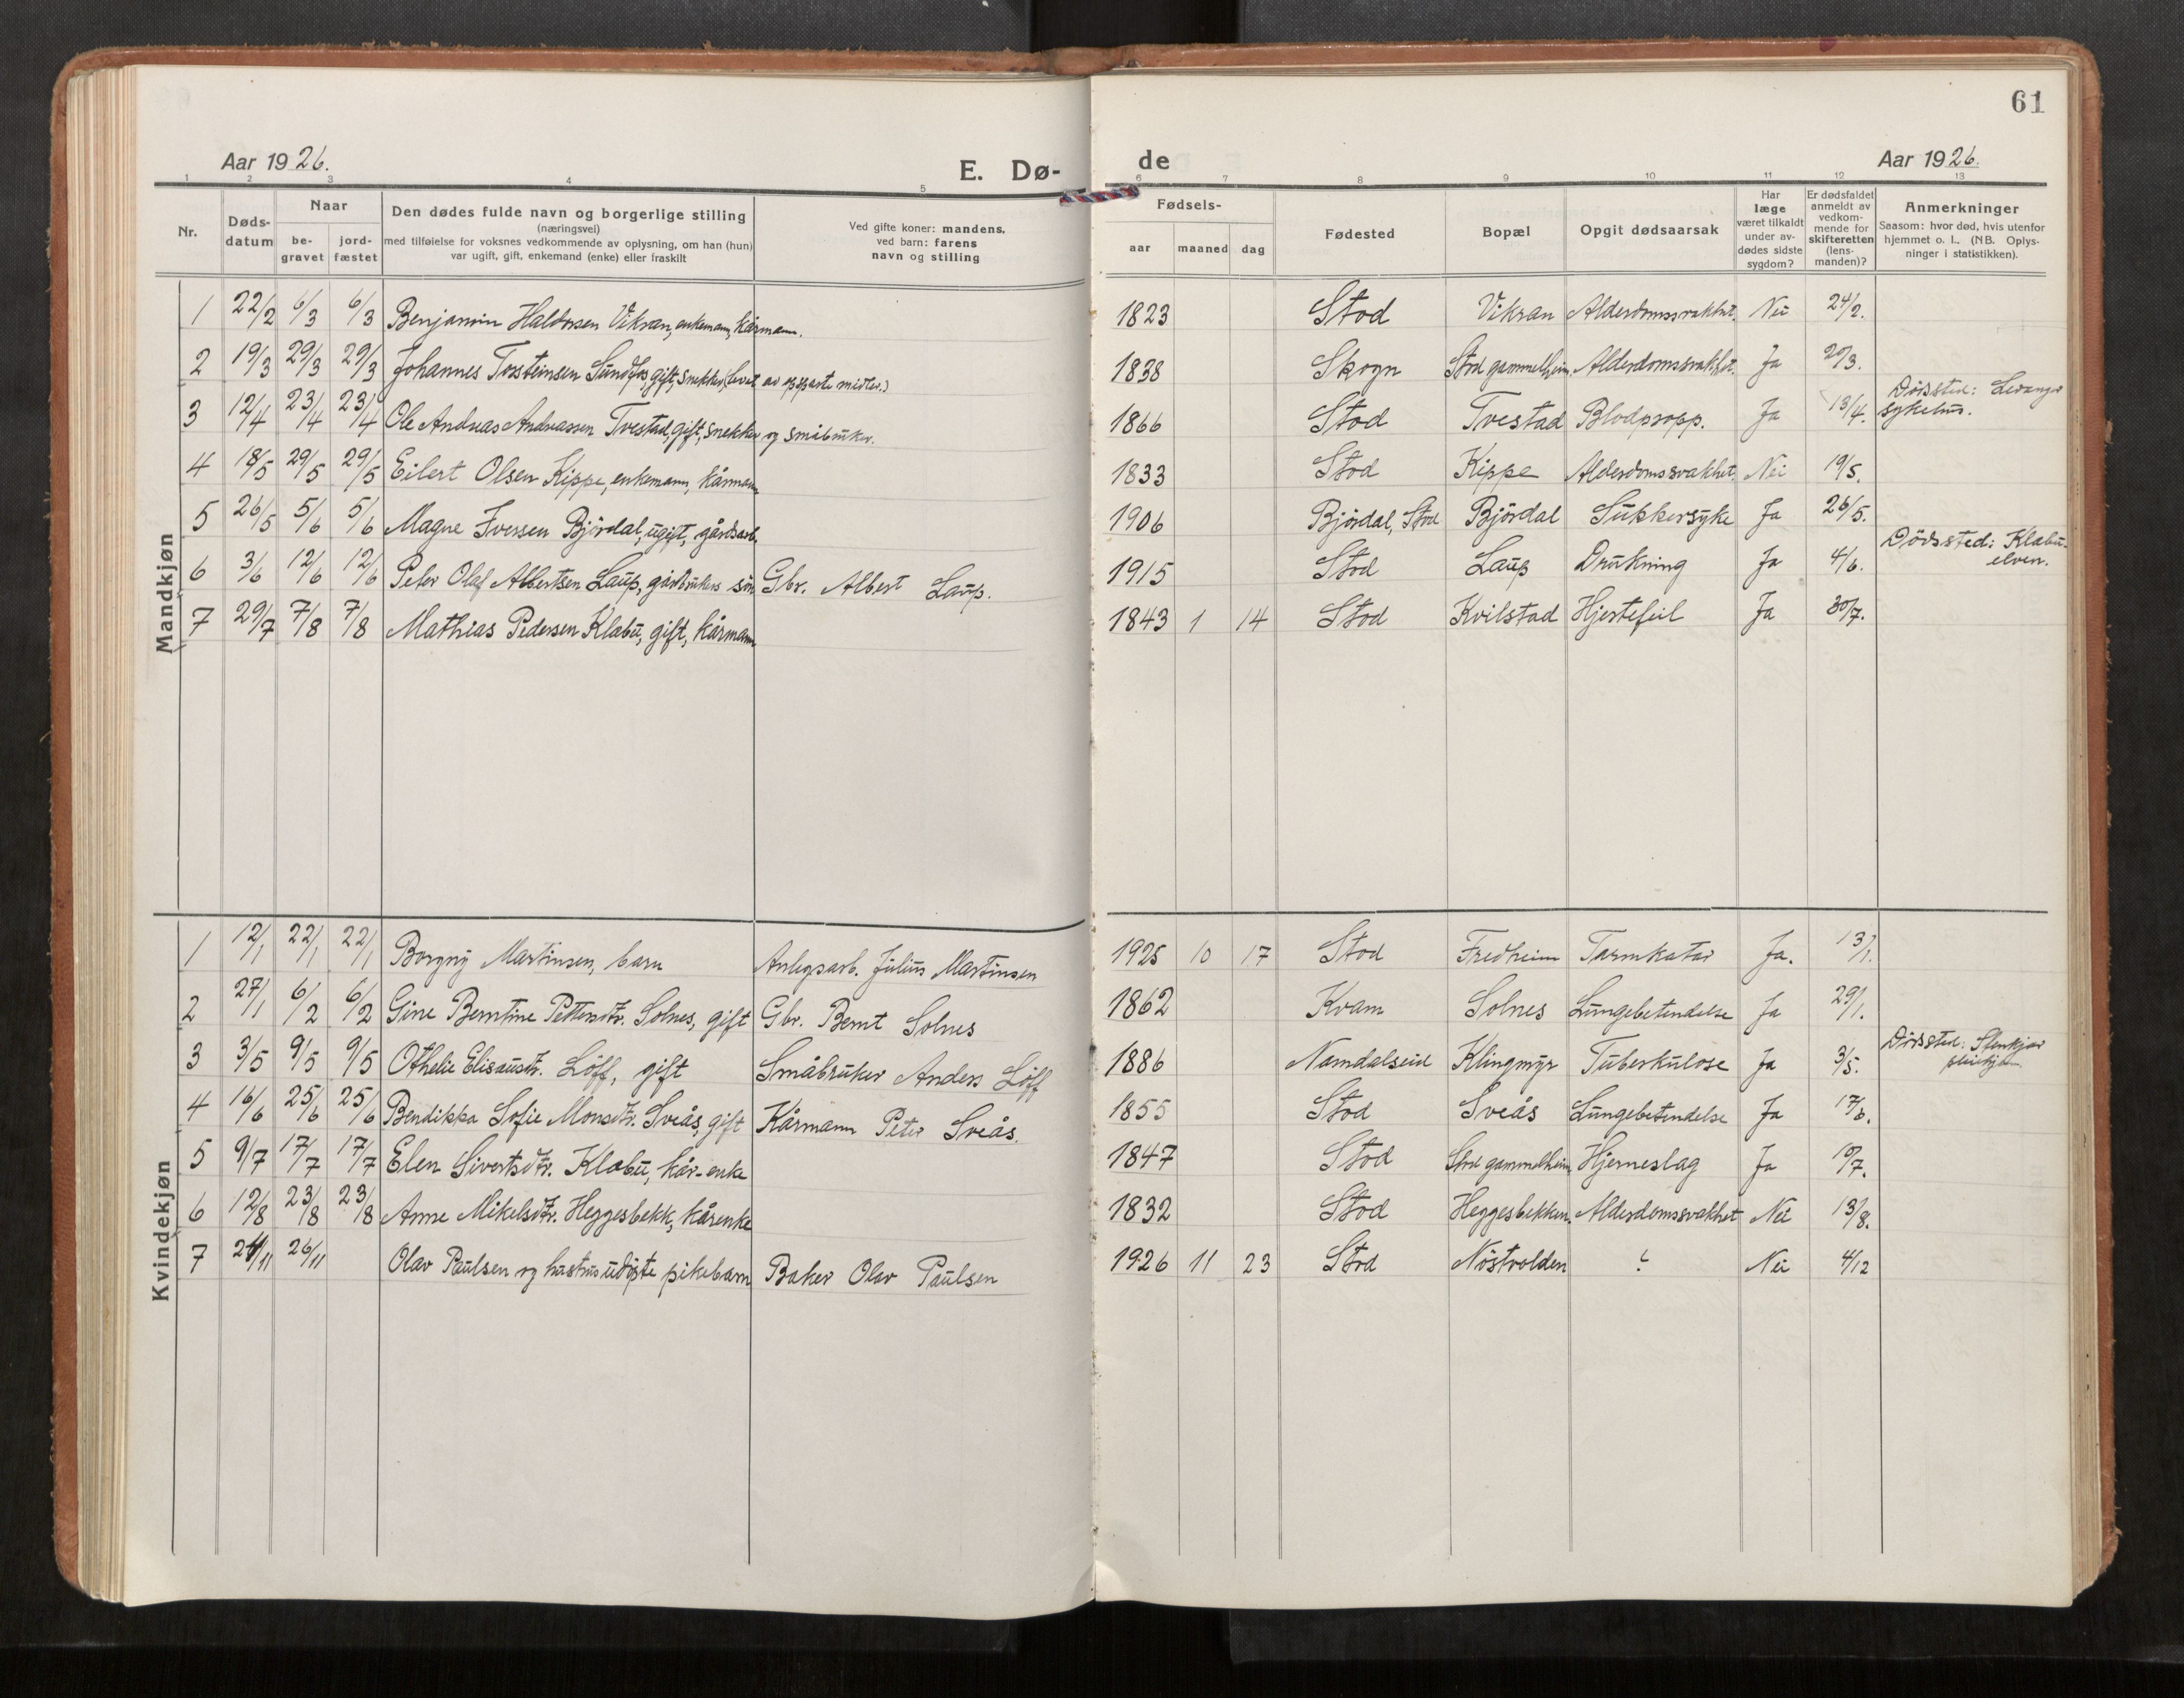 61
Aar 1926.
E. Dø-
de
Aar 1926.
1 2 3 4 5 6 7 8 9 10 11 12 13
Nr.
Døds-
datum
Naar
be-
gravet
jord-
fæstet
Den dødes fulde navn og borgerlige stilling
(næringsvei)
med tilføielse for voksnes vedkommende av oplysning, om han (hun)
var ugift, gift, enkemand (enke) eller fraskilt
Ved gifte koner: mandens,
ved barn: farens
navn og stilling
Fødsels-
aar maaned dag
Fødested
Bopæl
Opgit dødsaarsak
Har
læge
været tilkaldt
under av-
dødes sidste
sygdom?
Er dødsfaldet
anmeldt av
vedkom-
mende for
skifteretten
(lens-
manden)?
Anmerkninger
Saasom: hvor død, hvis utenfor
hjemmet o. l.. (NB. Oplys-
ninger i statistikken).
Mandkjøn
1 22/2 6/3 6/3 Benjamin Haldorsen Vikran, enkemann, kårmann. 1823 Stod Vikran Alderdomssvakhet. Nei 24/2.
2 19/3 29/3 29/3 Johannes Torsteinsen Sundfos, gift, snekker (levet av opsparte midler.) 1838 Skogn Stod gammelheim. Alderdomssvakhet. Ja 20/3.
3 12/4 23/4 23/4 Ole Andreas Andreassen Tvestad, gift, snekker og småbruker. 1866 Stod Tvestad Blodpropp. Ja 13/4. Dødssted: Levanger
sykehus.
4 18/5 29/5 29/5 Eilert Olsen Kippe, enkemann, kårmann 1833 Stod Kippe Alderdomssvakhet. Nei 19/5.
5 26/5 5/6 5/6 Magne Iversen Björdal, ugift, gårdsarb. 1906 Björdal, Stod Björdal Sukkersyke Ja 26/5.
6 3/6 12/6 12/6 Peter Olaf Albertsen Laup, gårdbrukers sön Gbr. Albert Laup. 1915 Stod Laup Drukning Ja 4/6. Dödssted: Klæbu-
elven.
7 29/7 7/8 7/8 Mathias Pedersen Klæbu, gift, kårmann 1843 1 14 Stod Kvilstad Hjertefeil Ja 30/7.
Kvindekjøn
1 12/1 22/1 22/1 Borgny Martinsen, barn Anlegsarb. Julius Martinsen 1925 10 17 Stod Fredheim Tarmkatar Ja. 13/1.
2 27/1 6/2 6/2 Gine Berntine Pettersdtr. Solnes, gift Gbr. Bernt Solnes 1862 Kvam Solnes Lungebetendelse Ja 29/1.
3 3/5 9/5 9/5 Othelie Elisausdtr. Löff, gift Småbruker Anders Löff 1886 Namdalseid Klingmyr Tuberkulose Ja 3/5. Dödssted: Stenkjær
pleiehjem
4 16/6 25/6 25/6 Bendikka Sofie Monsdtr. Sveås, gift Kårmann Peter Sveås. 1855 Stod Sveås Lungebetendelse Ja 17/6.
5 9/7 17/7 17/7 Elen Sivertsdtr. Klæbu, kår-enke 1847 Stod Stod gammelheim. Hjerneslag Ja 10/7.
6 12/8 23/8 23/8 Anne Mikelsdtr. Heggesbekk, kårenke 1832 Stod Heggesbekken. Alderdomssvakhet Nei 13/8.
7 24/11 26/11 Olav Paulsen og hustrus udöpte pikebarn Baker Olav Paulsen 1926 11 23 Stod Nöstvolden ? Nei 4/12